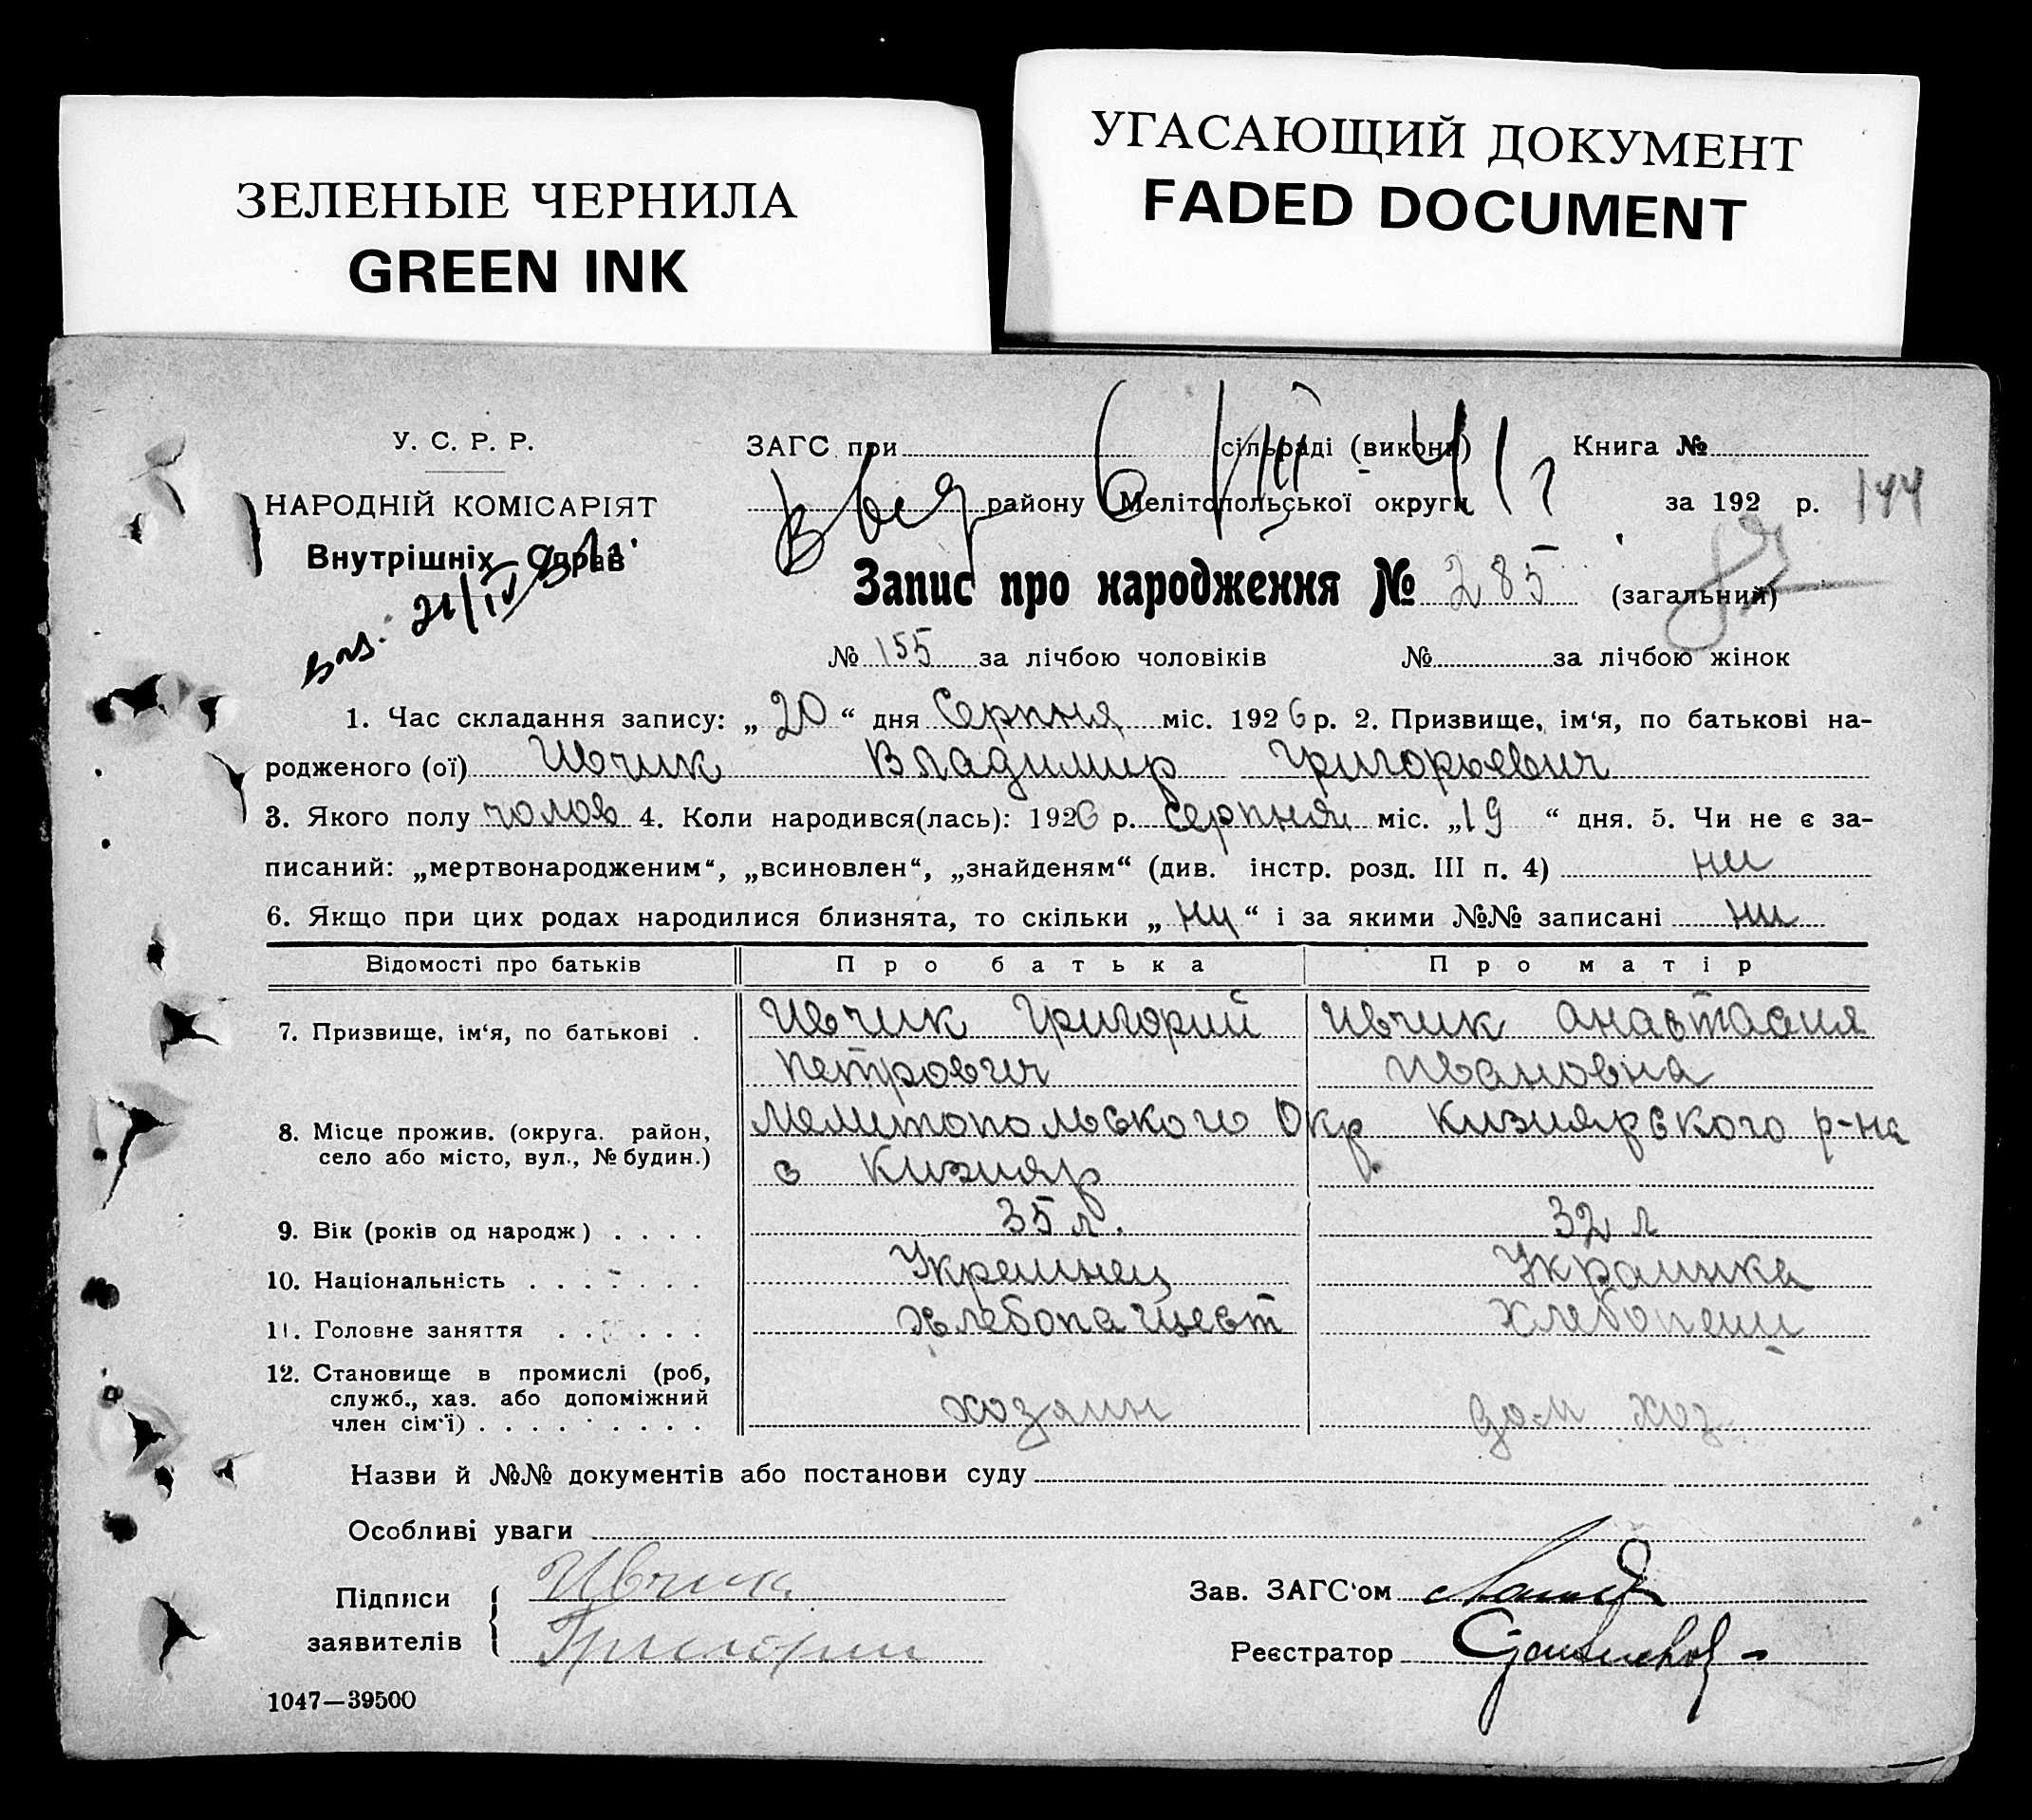 ЗЕЛЕНЫЕ ЧЕРНИЛА
GREEN INK
УГАСАЮЩИЙ ДОКУМЕНТ
FADED DOCUMENT
У. С. Р. Р.
НАРОДНІЙ КОМІСАРІЯТ
Внутрішніх Справ
ЗАГС при сільраді (викони) Книга №
району Мелітопольської округи за 192 р. 144
Запис про народження № 285 (загальний)
№ 155 за лічбою чоловіків № за лічбою жінок
1. Час складання запису: „ 20 “ дня Серпня міс. 1926 р. 2. Призвище, ім‘я, по батькові на-
родженого (ої) Ивчик Владимир Григорьевич
3. Якого полу чолов 4. Коли народився(лась): 1926 р. серпня міс. „19 “ дня. 5. Чи не є за-
писаний: „мертвонародженим“, „всиновлен“, „знайденям“ (див. інстр. розд. III п. 4) ни
6. Якщо при цих родах народилися близнята, то скільки „ ни “ і за якими №№ записані ни
Відомості про батьків Про батька Про матір
7. Призвище, ім‘я, по батькові . Ивчик Григорий Ивчик Анастасия
Петрович Ивановна
8. Місце прожив. (округа. район, Мелитопольского Окр Кизиярского р-на
село або місто, вул., № будин.) с Кизияр
9. Вік (років од народж) . . . . 35 л. 32 л
10. Національність . . . . . . . Украинец Украинка
11. Головне заняття . . . . . . хлебопащест хлебопеш
12. Становище в промислі (роб,
служб., хаз. або допоміжний хозяин дом хоз
член сім‘ї) . . . . . . . .
Назви й №№ документів або постанови суду
Особливі уваги
Підписи Ивчик Зав. ЗАГС‘ом
заявителів Григории Реєстратор
1047—39500